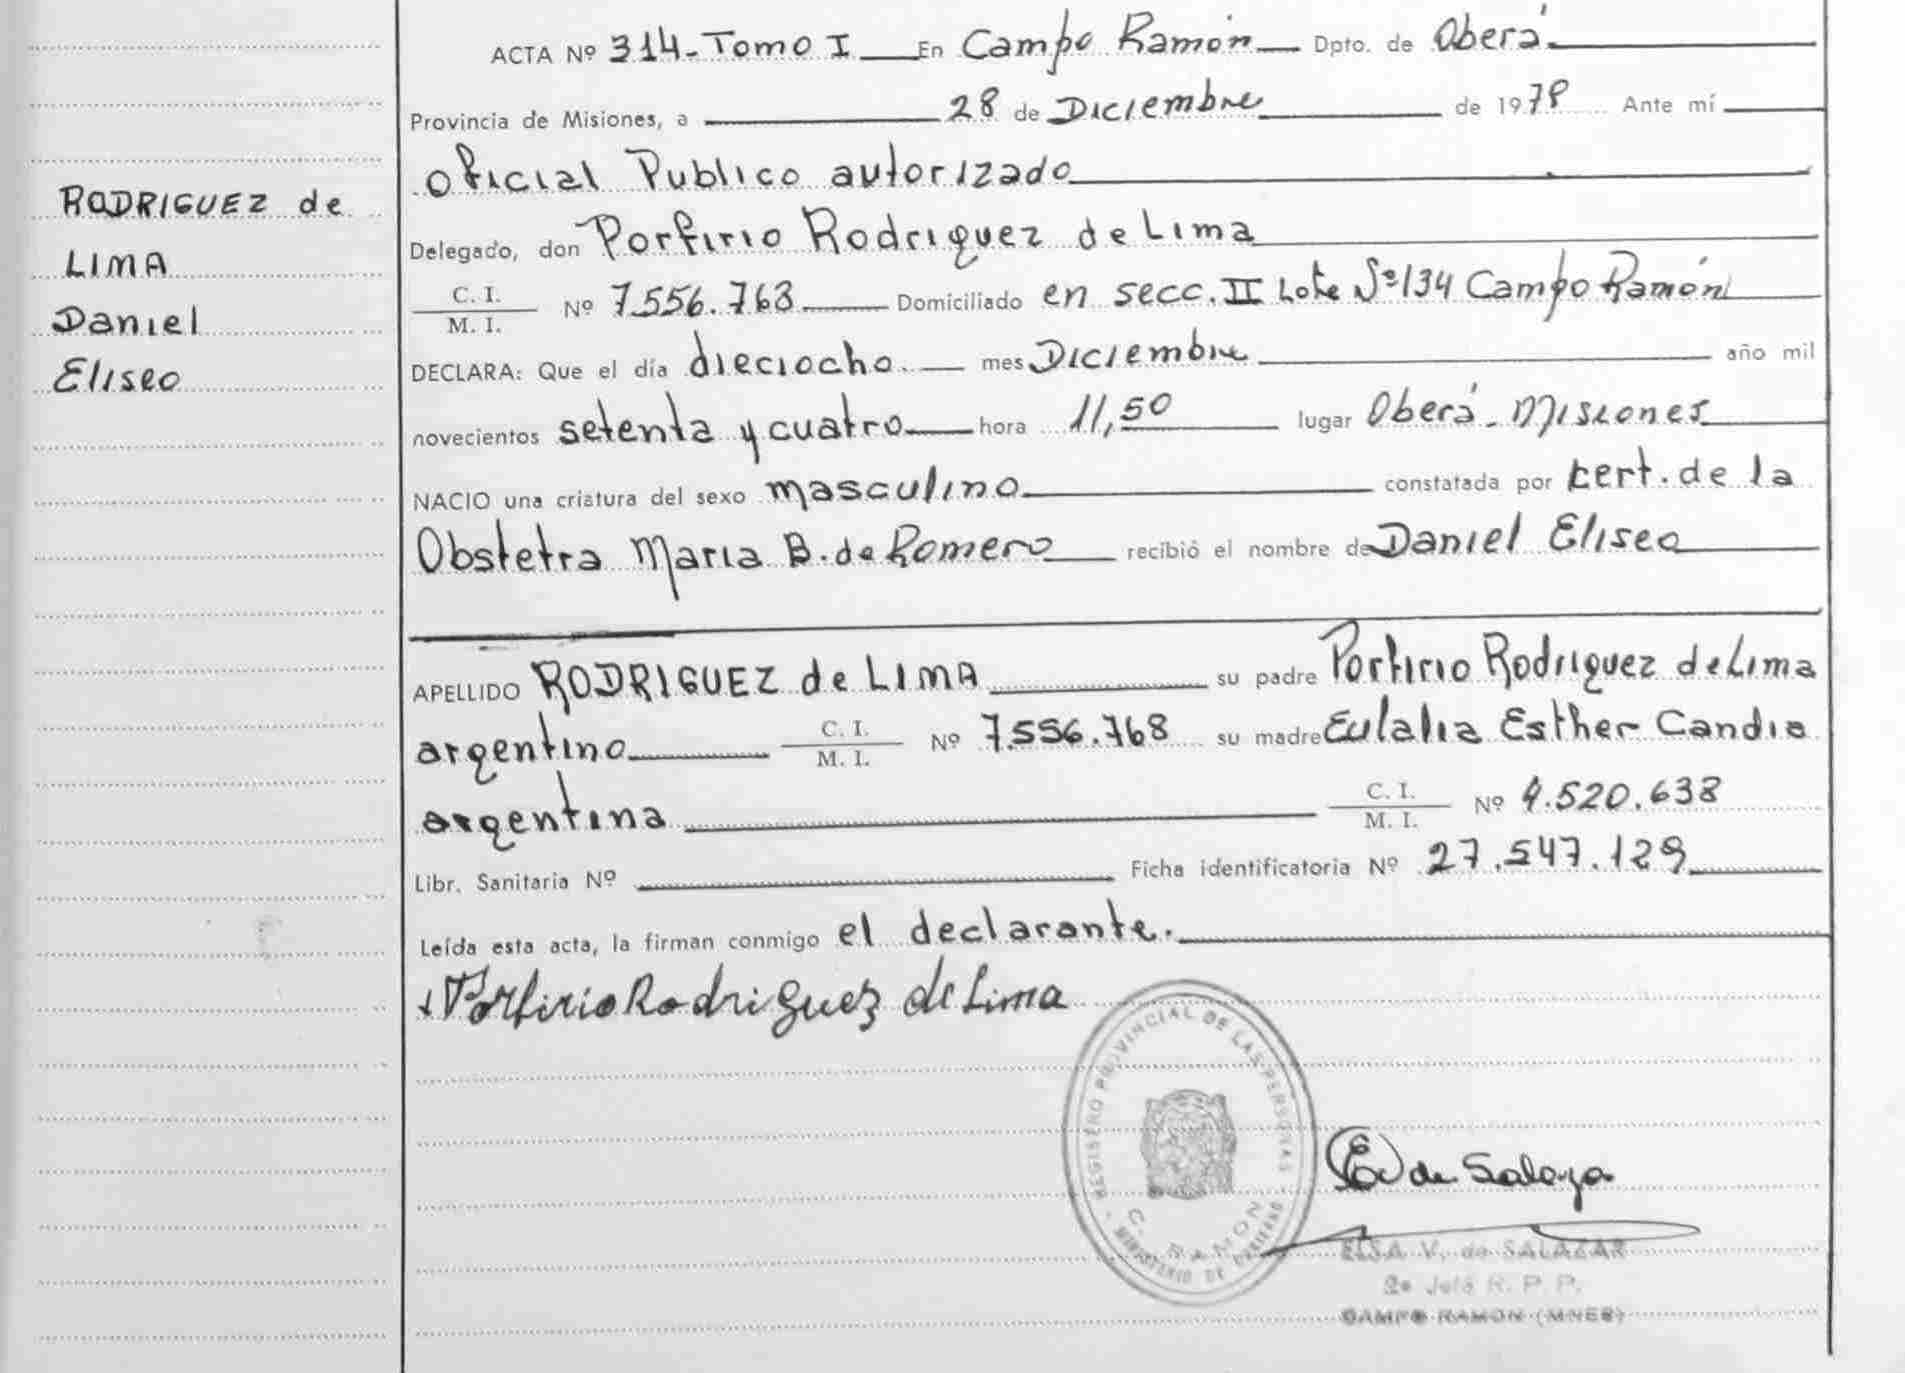 RODRIGUEZ de
LIMA
Daniel
Eliseo
ACTA Nº 314-Tomo I En Campo Ramón Dpto. de Oberá
Provincia de Misiones, a 28 de Diciembre de 1978 Ante mí
Oficial Publico autorizado
Delegado, don Porfirio Rodriguez de Lima
C. I.
M. I. Nº 7.556.768 Domiciliado en secc. II Lote Nº 134 Campo Ramón
DECLARA: Que el día dieciocho. mes Diciembre año mil
novecientos setenta y cuatro hora 11,50 lugar Oberá - Misiones
NACIO una criatura del sexo masculino constatada por cert. de la
Obstetra Maria B. de Romero recibió el nombre de Daniel Eliseo
APELLIDO RODRIGUEZ de LIMA su padre Porfirio Rodriguez de Lima
argentino C. I.
M. I. Nº 7.556.768 su madre Eulalia Esther Candia
argentina C. I.
M. I. Nº 4.520.638
Libr. Sanitaria Nº Ficha identificatoria Nº 27.547.129
Leída esta acta, la firman conmigo el declarante.
Porfirio Rodriguez de Lima
REGISTRO PROVINCIAL DE LAS PERSONAS
C. RAMON
MINISTERIO DE GOBIERNO
E de Salaza
ELSA V. de SALAZAR
R. P. P.
CAMPO RAMON (MNES)